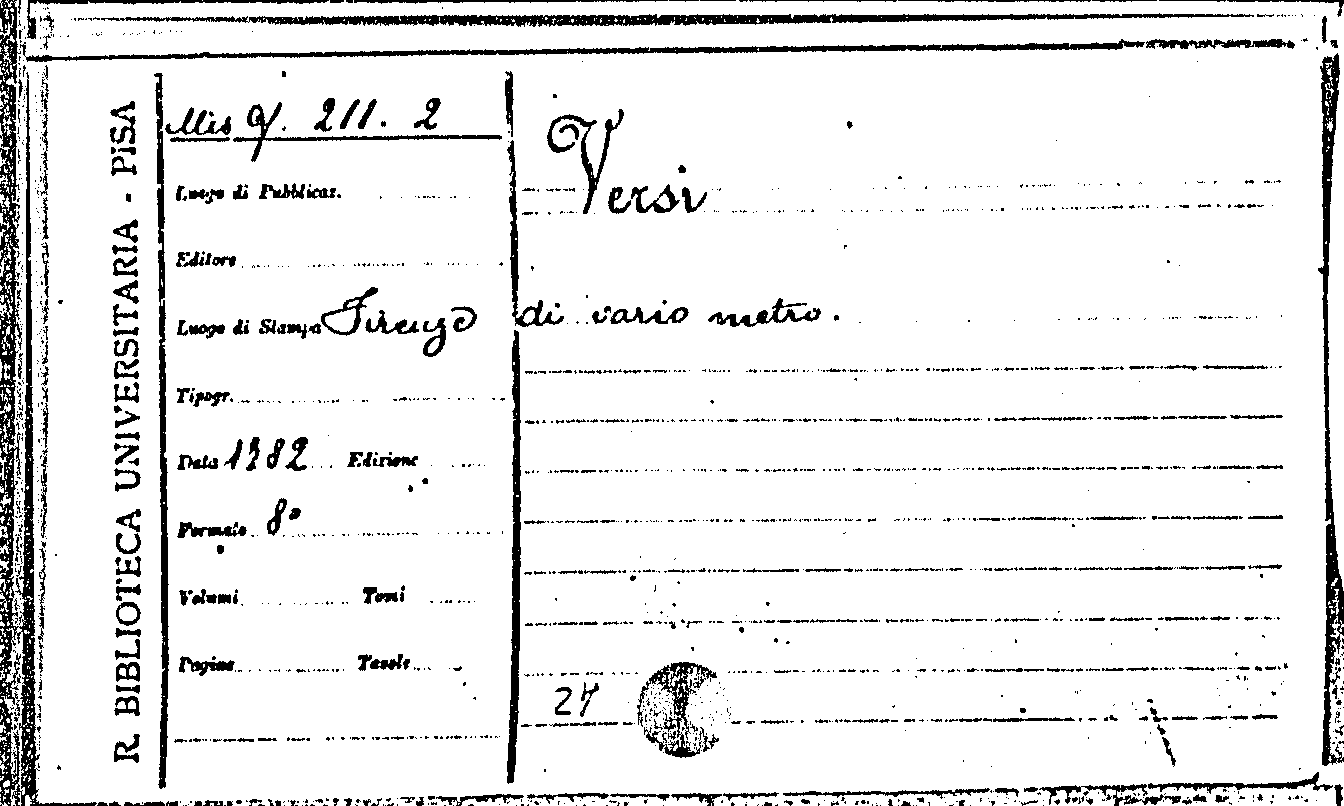 R. BIBLIOTECA UNIVERSITARIA - PISA
Mis 211. 2
Luogo di Pubblicaz.
Editore
Luogo di Stampa Firenze
Tipogr.
Data 1782 Edizione
Formato 8º
Volumi Tomi
Pagine Tavole
Versi
di vario metro.
24